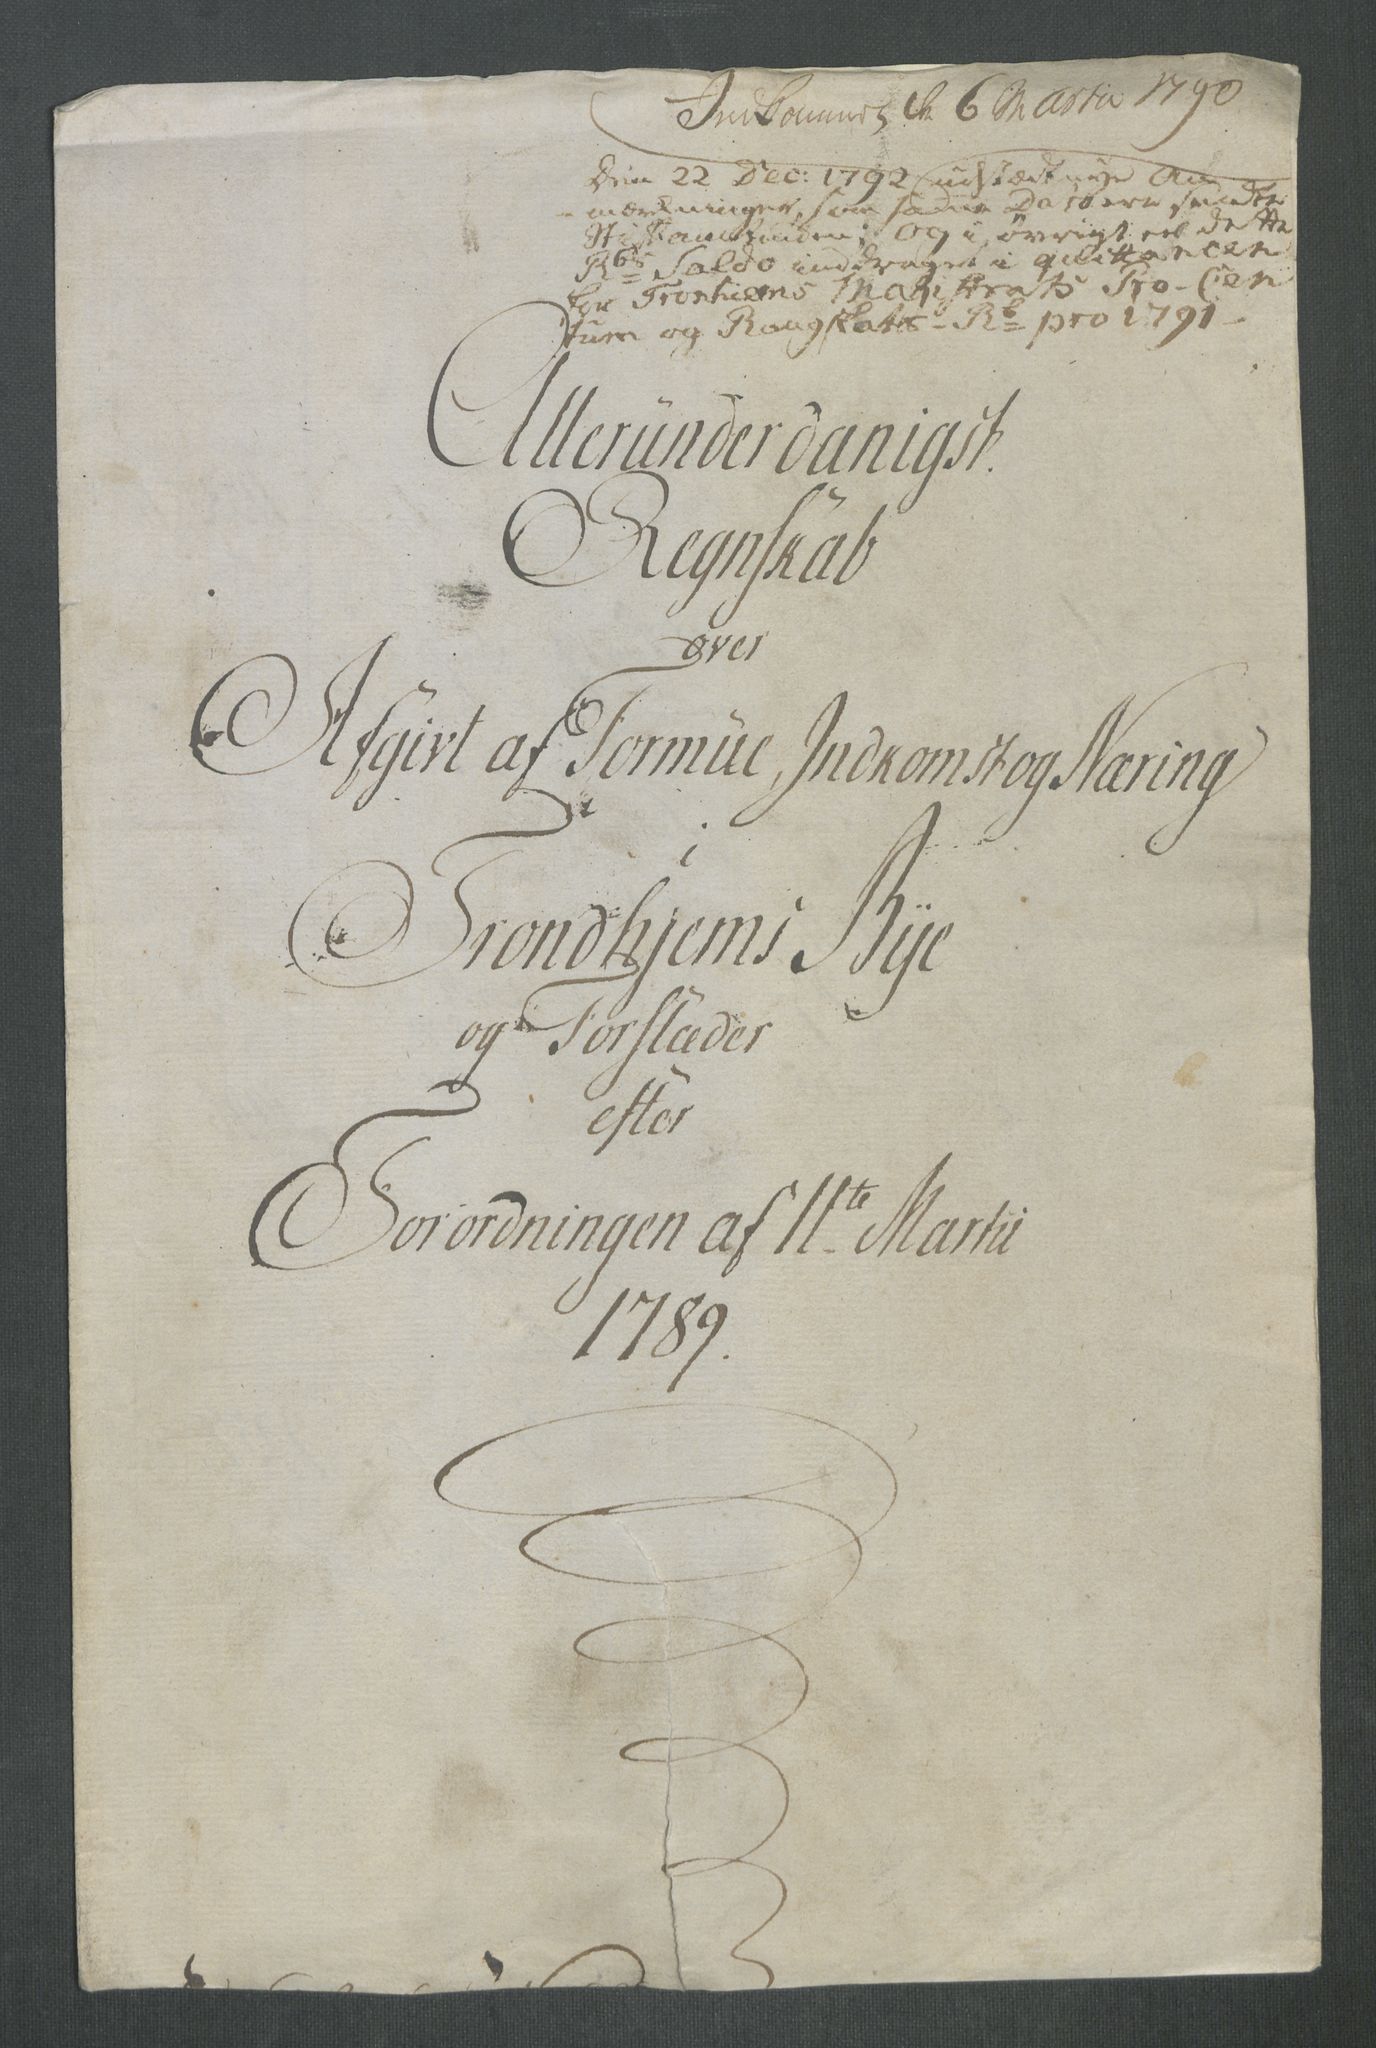 Indkommet d. 6 Martii 1790
Den 22 Dec: 1792 udstædt nye An
-mærkninger, som samme Dato ere sendte
Stiftamtmanden; og i øvrigt er dette
Rbs Saldo inddraget i qvittancen
for Tronhiems Magistrats Pro-Cen
tum og Rangskatts-Rb pro 1791-
Alleründerdanigst.
Regnskab
over
Afgivt af Formüe, Indkomst og Næring
i
Trondhjems Bÿe
og Forstæder
efter
Forordningen af 11te Martii
1789.